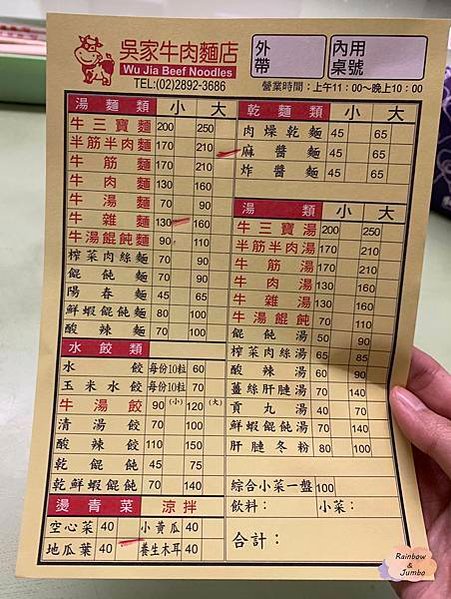 吳家牛肉麵店
Wu Jia Beef Noodles
TEL:(02)2892-3686
外帶
內用桌號
營業時間：上午11：00～晚上10：00
湯麵類 小 大
牛三寶麵 200 250
半筋半肉麵 170 210
牛筋麵 170 210
牛肉麵 130 160
牛湯麵 70 90
牛雜麵 130 160
牛湯餛飩麵 90 110
榨菜肉絲麵 70 90
餛飩麵 70 90
陽春麵 45 65
鮮蝦餛飩麵 80 100
酸辣麵 70 100
水餃類
水餃 每份10粒 60
玉米水餃 每份10粒 70
牛湯餃 90 (小) 120 (大)
清湯餃 70 100
酸辣餃 110 150
乾餛飩 45 75
乾鮮蝦餛飩 70 140
燙青菜 涼拌
空心菜 40 小黃瓜 40
地瓜葉 40 養生木耳 40
乾麵類 小 大
肉燥乾麵 45 65
麻醬麵 45 65
炸醬麵 45 65
湯類 小 大
牛三寶湯 200 250
半筋半肉湯 170 210
牛筋湯 170 210
牛肉湯 130 160
牛雜湯 130 160
牛湯餛飩 70 110
餛飩湯 50 90
榨菜肉絲湯 65 85
酸辣湯 60 90
薑絲肝膶湯 70 140
貢丸湯 40 70
鮮蝦餛飩湯 70 140
肝膶冬粉 80 100
綜合小菜一盤 100
飲料： 小菜：
合計：
Rainbow
&
Jumbo